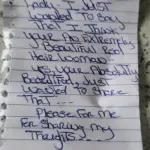 Lady, I Just
wanted to Say
that I Think
your An Extremely
Beautiful Red
Hair Woman -
yes your Absolutely
Beautiful, Just
wanted to Share
that ---
Please for Me
For Sharing my
Thoughts